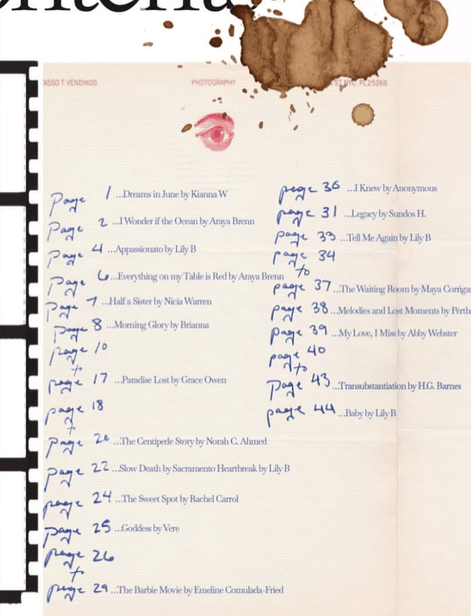 ASSO T. VENDIKOS PHOTOGRAPHY
page 1 ...Dreams in June by Kianna W
page 2 ...I Wonder if the Ocean by Araya Brenn
page 4 ...Appassionato by Lily B
page 6 ...Everything on my Table is Red by Araya Brenn
page 7 ...Half a Sister by Nicia Warren
page 8 ...Morning Glory by Brianna
page 10
to
page 17 ...Paradise Lost by Grace Owen
page 18
to
page 20 ...The Centipede Story by Norah C. Ahmed
page 22 ...Slow Death by Sacramento Heartbreak by Lily B
page 24 ...The Sweet Spot by Rachel Carrol
page 25 ...Goddess by Vere
page 26
to
page 29 ...The Barbie Movie by Emeline Comulada-Fried
page 30 ...I Knew by Anonymous
page 31 ...Legacy by Sundos H.
page 33 ...Tell Me Again by Lily B
page 34
to
page 37 ...The Waiting Room by Maya Corriga
page 38 ...Melodies and Lost Moments by Perth
page 39 ...My Love, I Miss by Abby Webster
page 40
to
page 43 ...Transubstantiation by H.G. Barnes
page 44 ...Baby by Lily B